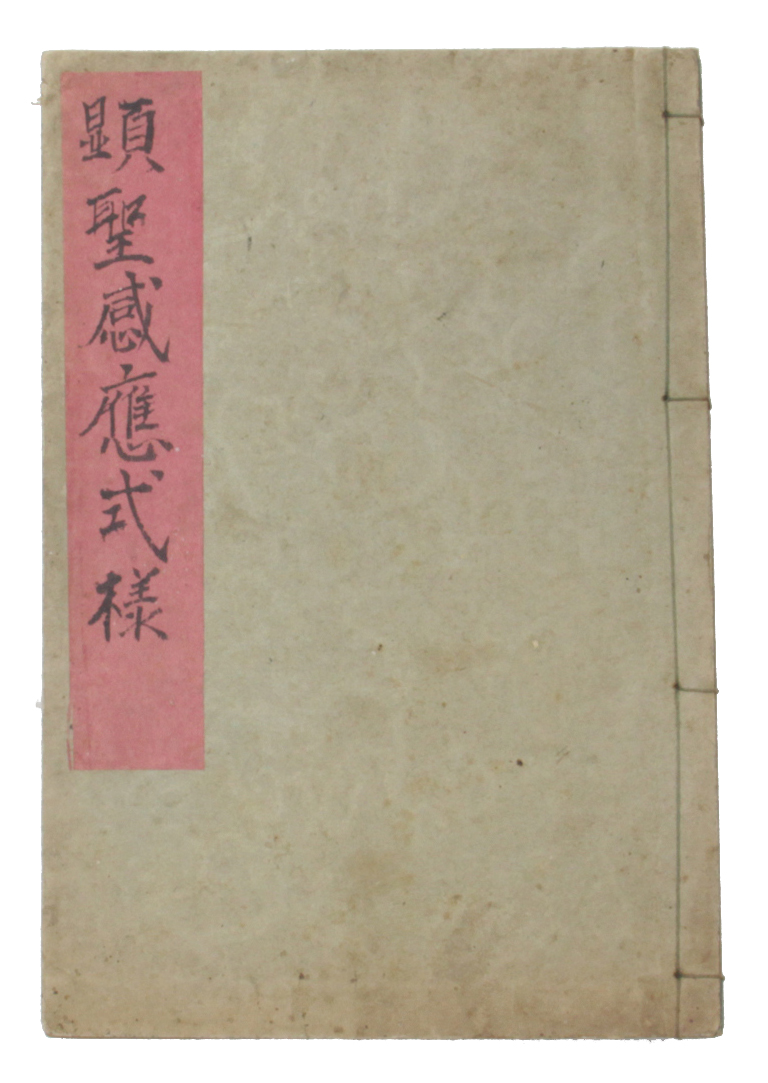 顕聖感應式様